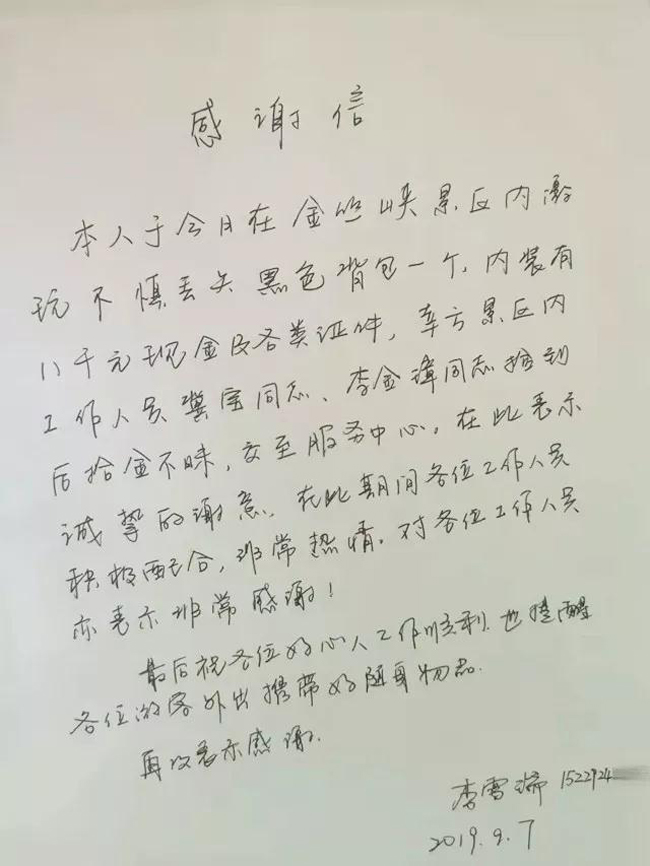 感谢信
本人于今日在金丝峡景区内游
玩不慎丢失黑色背包一个,内装有
八千元现金及各类证件,幸亏景区内
工作人员冀宝同志、李金璋同志捡到
后拾金不昧,交至服务中心。在此表示
诚挚的谢意。在此期间各位工作人员
积极配合,非常热情。对各位工作人员
亦表示非常感谢!
最后祝各位好心人工作顺利。也提醒
各位游客外出携带好随身物品。
再次表示感谢。
李雪瑞 1522924
2019.9.7